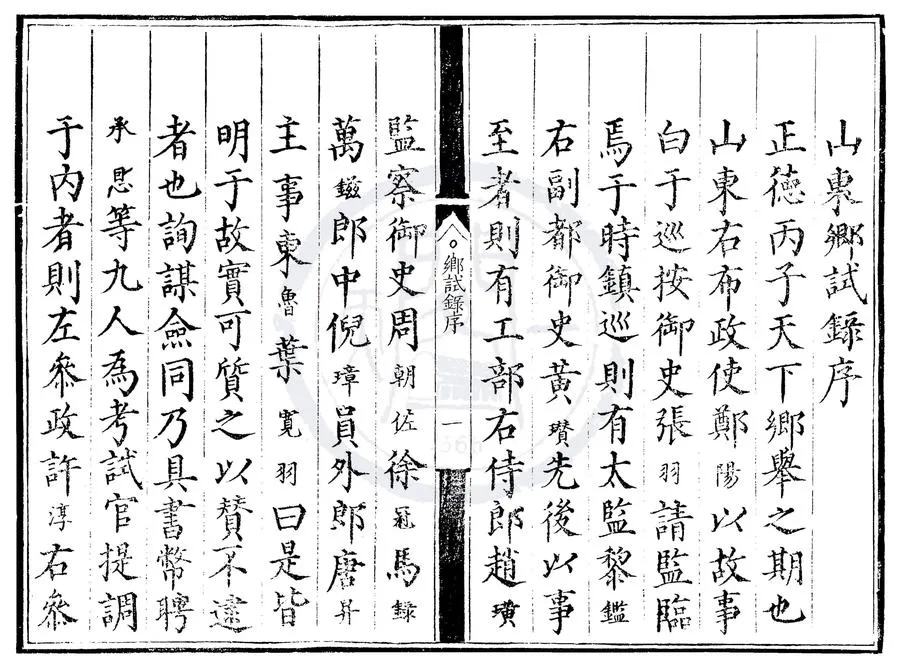 山東鄉試錄序
正德丙子天下鄉舉之期也
山東右布政使鄭陽以故事
白于巡按御史張羽請監臨
焉于時鎮巡則有太監黎鑑
右副都御史黃瓚先後以事
至者則有工部右侍郎趙璜
鄉試錄序 一
監察御史周朝佐徐冠馬錄
萬鎡郎中倪璋員外郎唐昇
主事東魯葉寬羽曰是皆
明于故實可質之以贊不逮
者也詢謀僉同乃具書幣聘
承恩等九人為考試官提調
于內者則左參政許淳右參